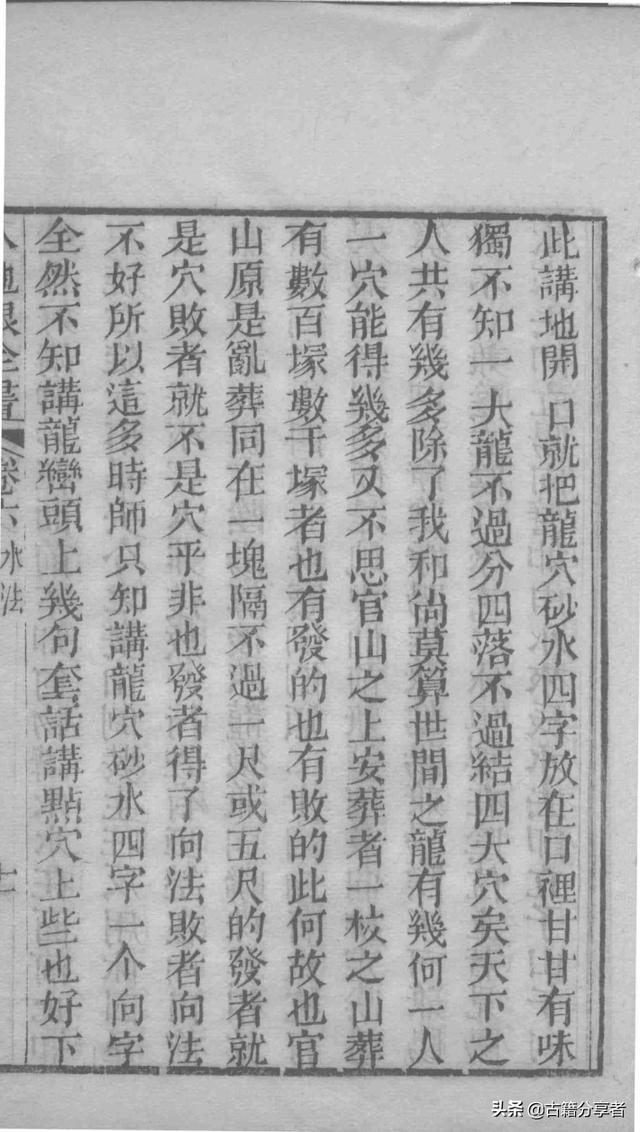 此講地開口就把龍穴砂水四字放在口裡甘甘有味
獨不知一大龍不過分四落不過結四大穴矣天下之
人共有幾多除了我和尚莫算世間之龍有幾何一人
一穴能得幾多又不思官山之上安葬者一枝之山葬
有數百塚數千塚者也有發的也有敗的此何故也官
山原是亂葬同在一塊隔不過一尺或五尺的發者就
是穴敗者就不是穴乎非也發者得了向法敗者向法
不好所以這多時師只知講龍穴砂水四字一个向字
全然不知講龍巒頭上幾句套話講點穴上些也好下
地眼全書 卷六 水法
头条 @古籍分享者